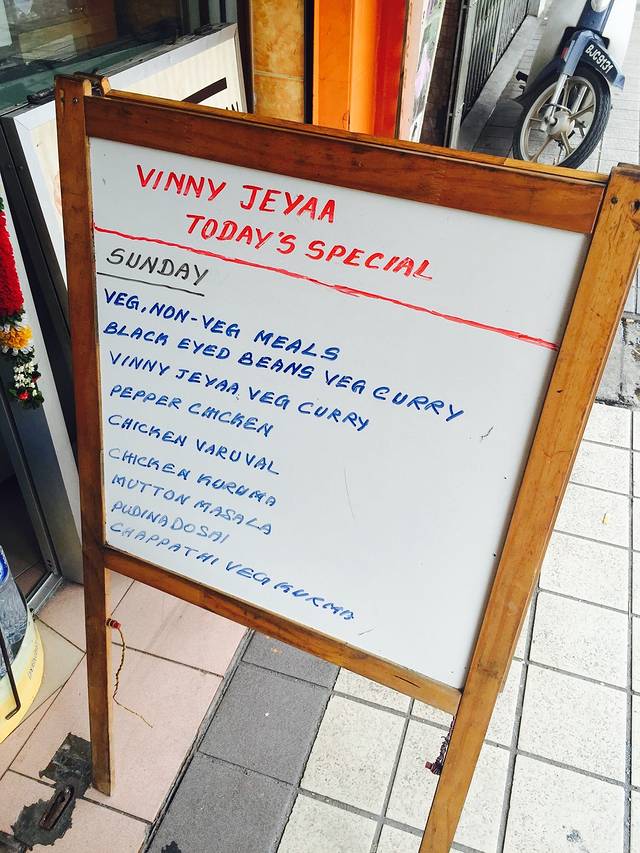 VINNY JEYAA
TODAY'S SPECIAL
SUNDAY
VEG, NON-VEG MEALS
BLACK EYED BEANS VEG CURRY
VINNY JEYAA VEG CURRY
PEPPER CHICKEN
CHICKEN VARUVAL
CHICKEN KURUMA
MUTTON MASALA
PUDINADOSAI
CHAPPATHI VEG KURMA
BJC9131